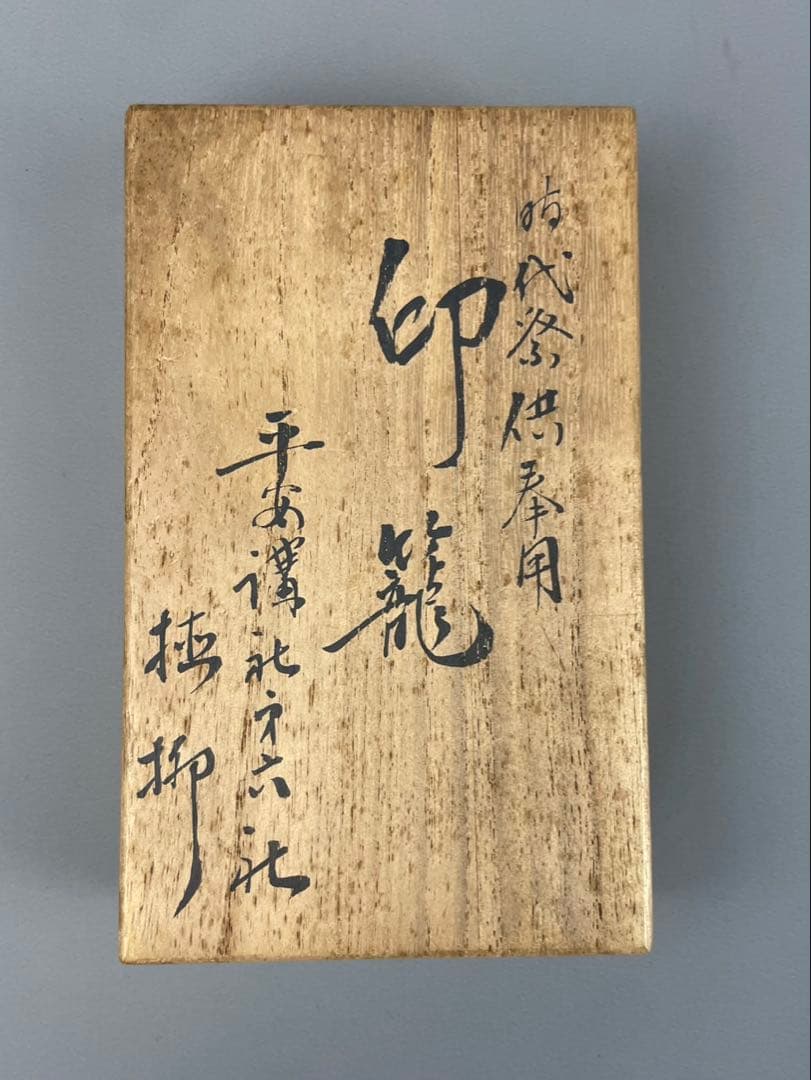 時代祭供奉用
印籠
平安講社才六社
植柳